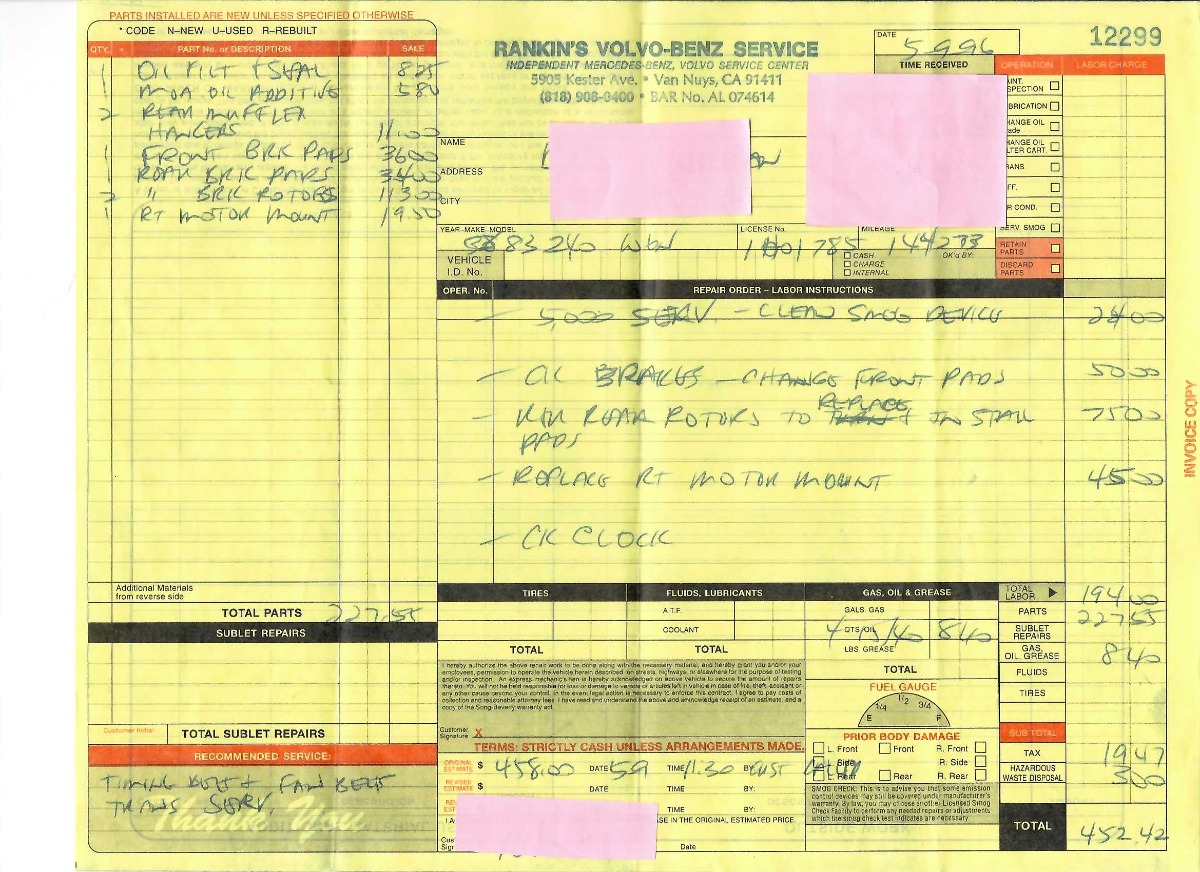 PARTS INSTALLED ARE NEW UNLESS SPECIFIED OTHERWISE
* CODE N–NEW U–USED R–REBUILT
QTY. * PART No. or DESCRIPTION SALE
1 OIL FILT + SEAL 8 25
1 MOA OIL ADDITIVE 5 80
2 REAR MUFFLER
HANGERS 11.00
1 FRONT BRK PADS 36 00
1 REAR BRK PADS 34 00
2 " BRK ROTORS 113 00
1 RT MOTOR MOUNT 19 50
Additional Materials
from reverse side
TOTAL PARTS 227.55
SUBLET REPAIRS
Customer Initial
TOTAL SUBLET REPAIRS
RECOMMENDED SERVICE:
TIMING BELT + FAN BELT
TRANS SERV.
Thank You
RANKIN'S VOLVO–BENZ SERVICE
INDEPENDENT MERCEDES-BENZ, VOLVO SERVICE CENTER
5905 Kester Ave. • Van Nuys, CA 91411
(818) 908-0400 • BAR No. AL 074614
DATE 5 9 96
TIME RECEIVED
12299
NAME
ADDRESS
CITY
YEAR-MAKE-MODEL 83 240 WGN
LICENSE No.
MILEAGE 144273
VEHICLE
I.D. No.
CASH
CHARGE
INTERNAL
OK'd BY:
OPERATION LABOR CHARGE
AINT.
SPECTION
BRICATION
HANGE OIL
ade
HANGE OIL
LTER CART.
ANS.
FF.
R COND.
SERV. SMOG
RETAIN
PARTS
DISCARD
PARTS
OPER. No. REPAIR ORDER – LABOR INSTRUCTIONS
– 5,000 SERV. – CLEAN SMOG DEVICE 24 00
– CK BRAKES – CHANGE FRONT PADS 50 00
– REAR ROTORS TO REPLACE + INSTALL 75 00
PADS
– REPLACE RT MOTOR MOUNT 45 00
– CK CLOCK
INVOICE COPY
TIRES
TOTAL
FLUIDS, LUBRICANTS
A.T.F.
COOLANT
TOTAL
GAS, OIL & GREASE
GALS. GAS
4 QTS/OIL 15/40 8 40
LBS. GREASE
TOTAL
FUEL GAUGE
E 1/4 1/2 3/4 F
PRIOR BODY DAMAGE
L. Front Front R. Front
L. Side R. Side
L. Rear Rear R. Rear
SMOG CHECK: This is to advise you that some emission
control devices may still be covered under manufacturer's
warranty. By law, you may choose another Licensed Smog
Check Facility to perform any needed repairs or adjustments
which the smog check test indicates are necessary.
I hereby authorize the above repair work to be done along with the necessary material, and hereby grant you and/or your
employees, permission to operate the vehicle herein described on streets, highways, or elsewhere for the purpose of testing
and/or inspection. An express mechanic's lien is hereby acknowledged on above vehicle to secure the amount of repairs
thereto. You will not be held responsible for loss or damage to vehicle or articles left in vehicle in case of fire, theft, accident or
any other cause beyond your control. In the event legal action is necessary to enforce this contract, I agree to pay costs of
collection and reasonable attorney fees. I have read and understand the above and acknowledge receipt of an estimate, and a
copy of the Song-Beverly warranty act.
Customer
Signature X
TERMS: STRICTLY CASH UNLESS ARRANGEMENTS MADE.
ORIGINAL
ESTIMATE $ 458.00 DATE 5 9 TIME 11.30 BY:
REVISED
ESTIMATE $ DATE TIME BY:
TIME BY:
SE IN THE ORIGINAL ESTIMATED PRICE.
Date
TOTAL
LABOR 194 00
PARTS 227 55
SUBLET
REPAIRS
GAS,
OIL, GREASE 8 40
FLUIDS
TIRES
SUB TOTAL
TAX 19 47
HAZARDOUS
WASTE DISPOSAL 3 00
TOTAL 452.42